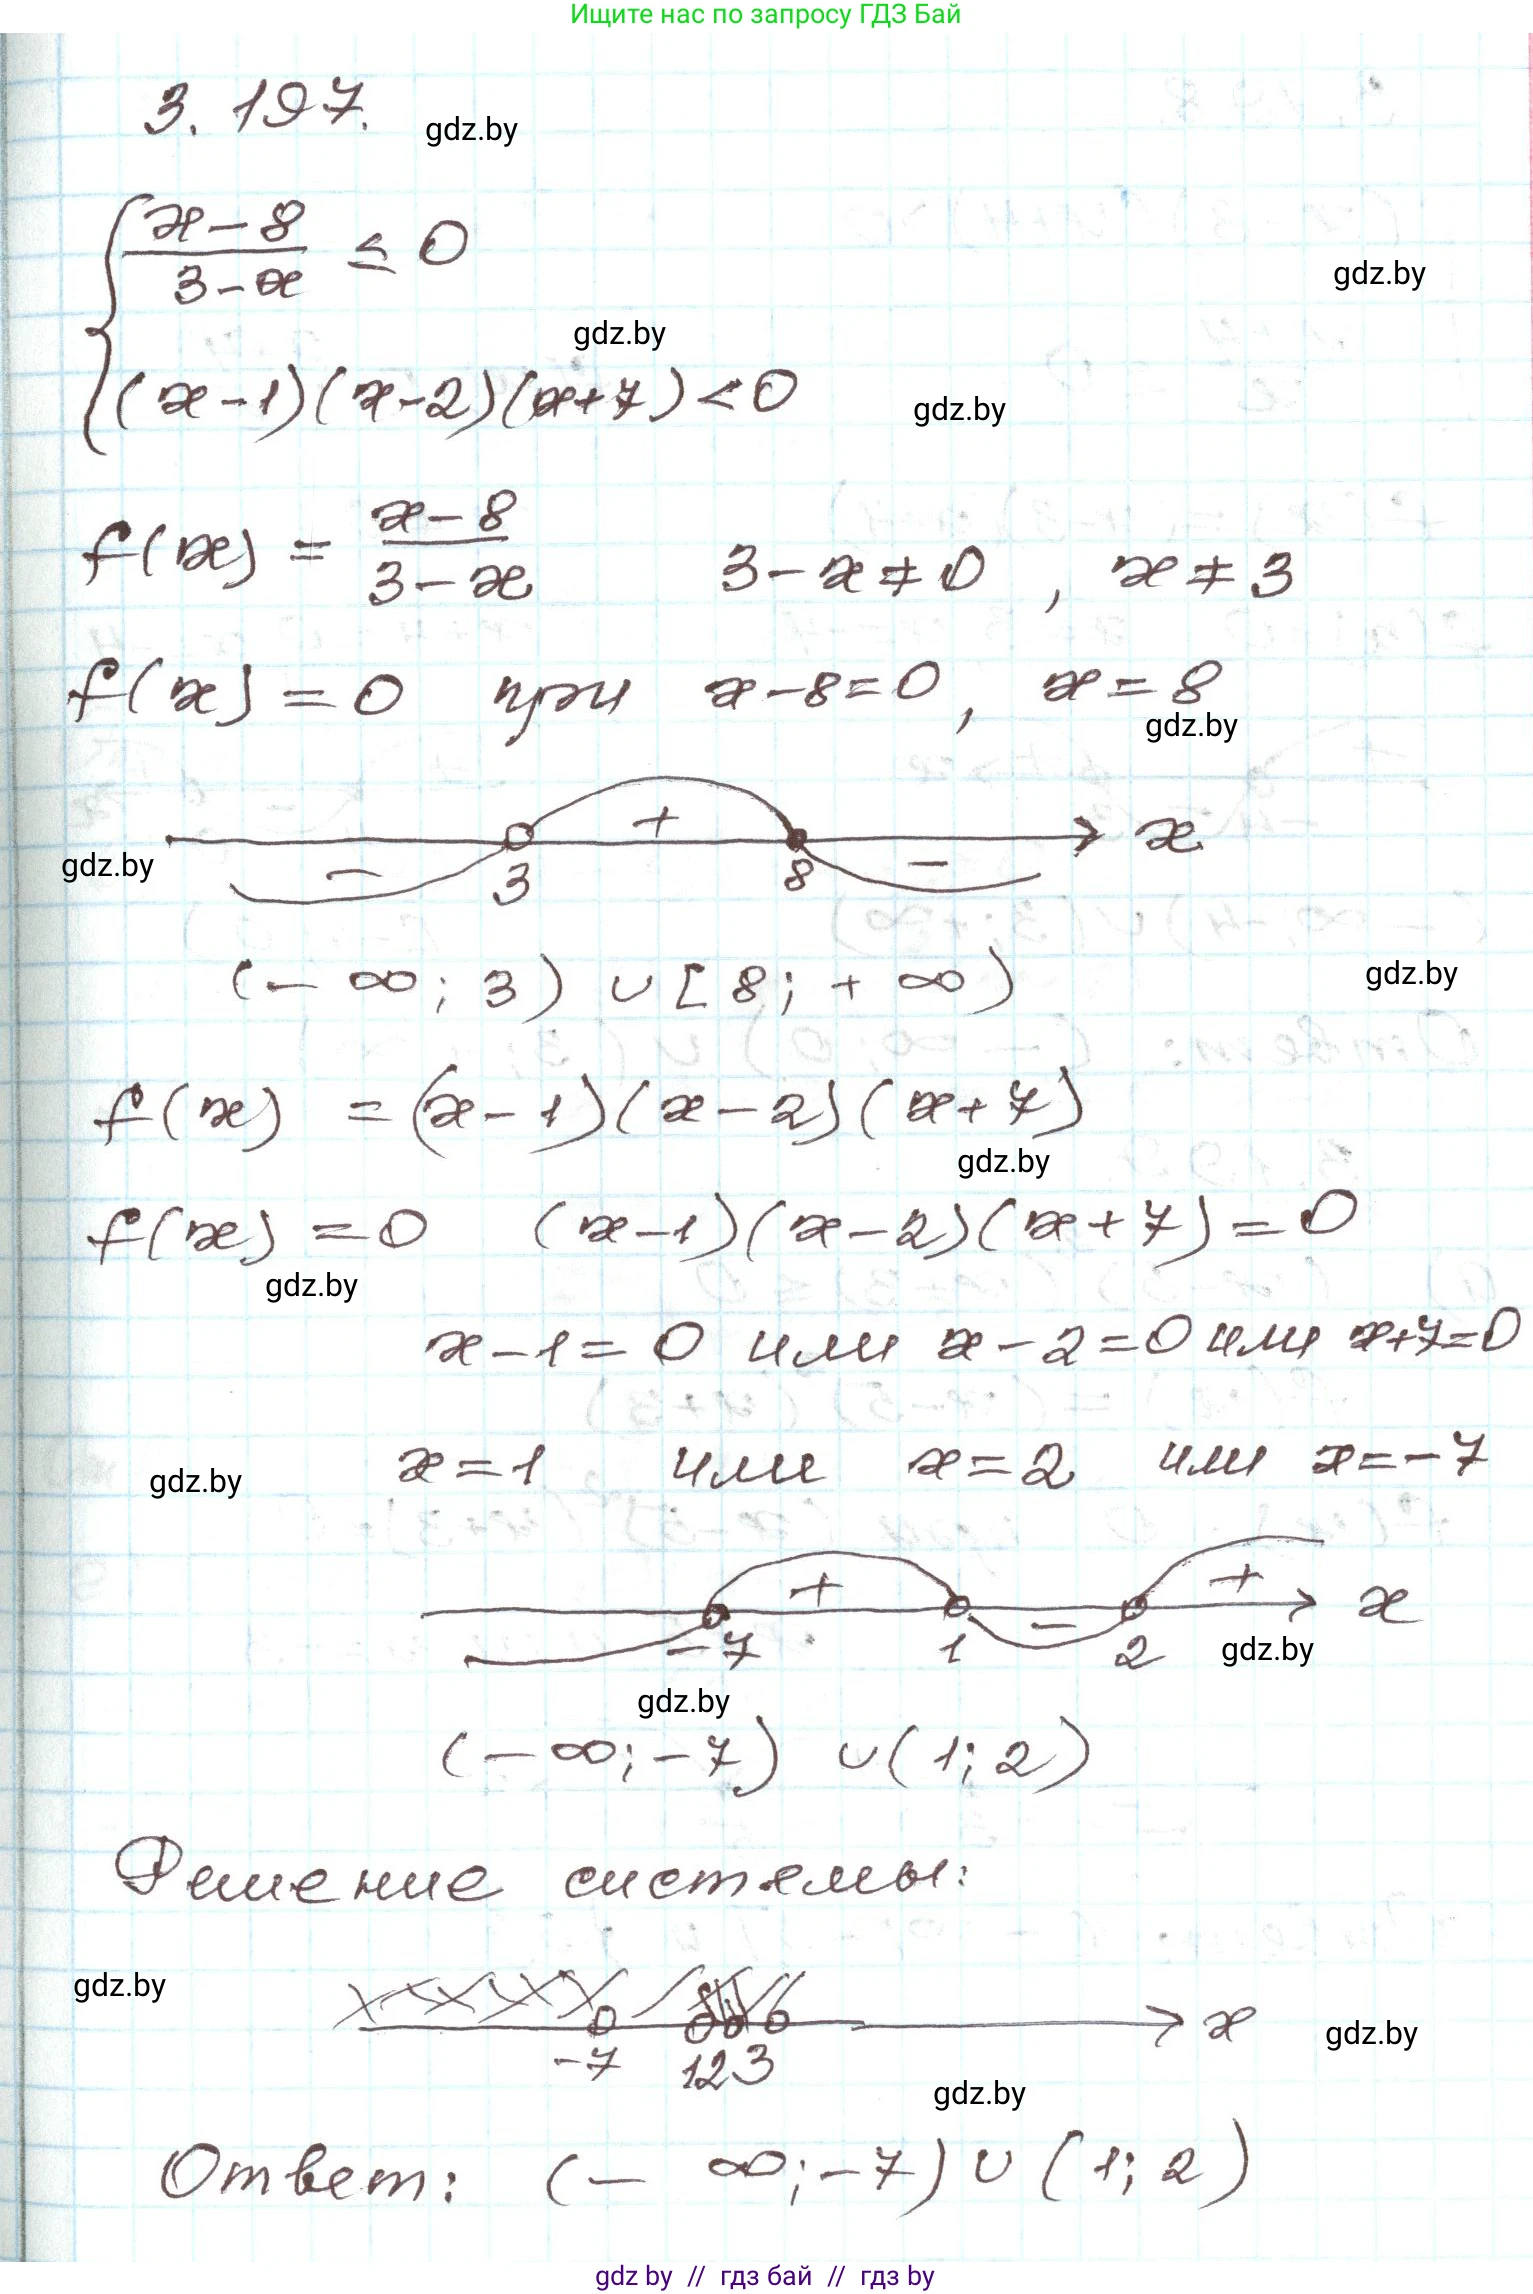 Ищите нас по запросу ГДЗ Бай
3.197.
gdz.by
x-8
3-x
≤ 0
gdz.by
gdz.by
(x-1)(x-2)(x+7)<0
gdz.by
f(x) = x-8 / 3-x    3-x≠0, x≠3
f(x)=0 при x-8=0, x=8
gdz.by
- + - x
gdz.by
3 8
(-∞; 3) ∪ [8; +∞)
gdz.by
f(x) =(x-1)(x-2)(x+7)
gdz.by
f(x)=0 (x-1)(x-2)(x+7)=0
gdz.by
x-1=0 или x-2=0 или x+7=0
x=1 или x=2 или x=-7
gdz.by
+ - + x
-7 1 2
gdz.by
gdz.by
(-∞;-7) ∪(1;2)
Решение системы:
gdz.by
x
gdz.by
-7 1 2 3
gdz.by
Ответ: (-∞;-7)∪(1;2)
gdz.by // гдз бай // гдз by